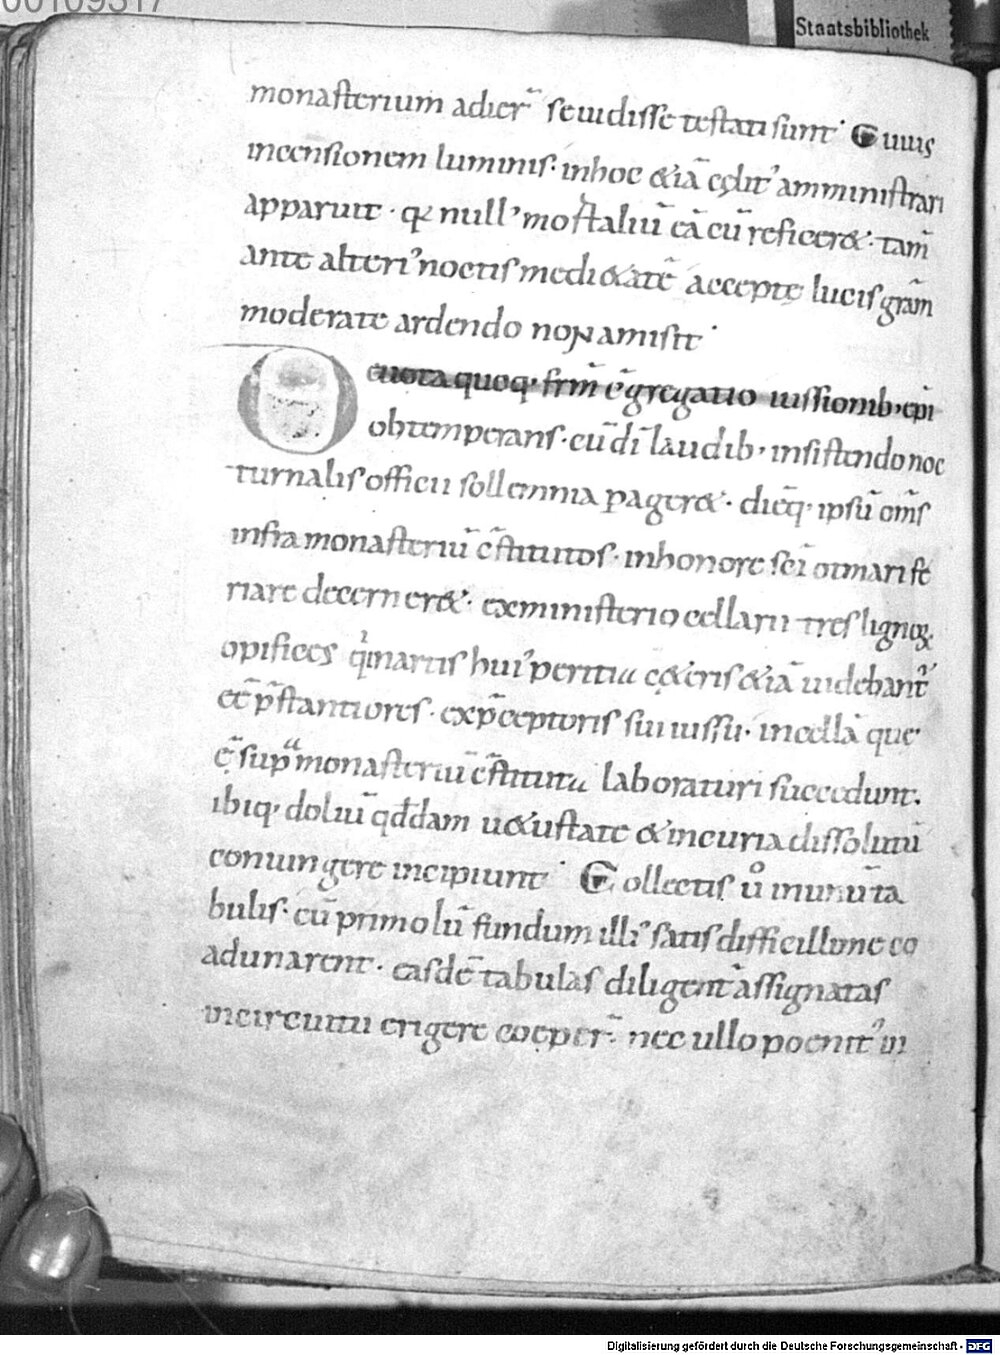 00109317
Staatsbibliothek
monasterium adier̄ se uidisse testati sunt· Cuius
incensionem luminis· in hoc &iā cęlit᾽ amministrari
apparuit· qꝛ null᾽ mortaliū eā cū reficer&· tam̄
ante alteri᾽ noctis medi&atē acceptę lucis gr̄am
moderate ardendo non amisit·
Deuota quoq· frm̄ c̄gregatio iussionib· ep̄i
obtemperans· cū dī laudib· insistendo noc
turnalis officii sollemnia pager&· dieq̄· ipsū om̄s
infra monasteriū c̄stitutos· in honore sc̄i otmari fe
riare decerner&· ex ministerio cellarii tres ligneꝝ
opifices qͥ in artis hui᾽ peritia c&eris &iā uidebant᾽
eē p̄stantiores· ex p̄ceptoris sui iussu· in cella que
ē sup̄ monasteriū c̄stituta laboraturi succedunt·
ibiq· doliū qđdam u&ustate & incuria dissolutū
conuingere incipiunt· Collectis ů in unū ta
bulis· cū primo lū fundum illi᾽ satis difficillime co
adunarent· easdē tabulas diligent̄ assignatas
in circuitu erigere coeper̄· nec ullo poenit᾽ in
Digitalisierung gefördert durch die Deutsche Forschungsgemeinschaft - DFG